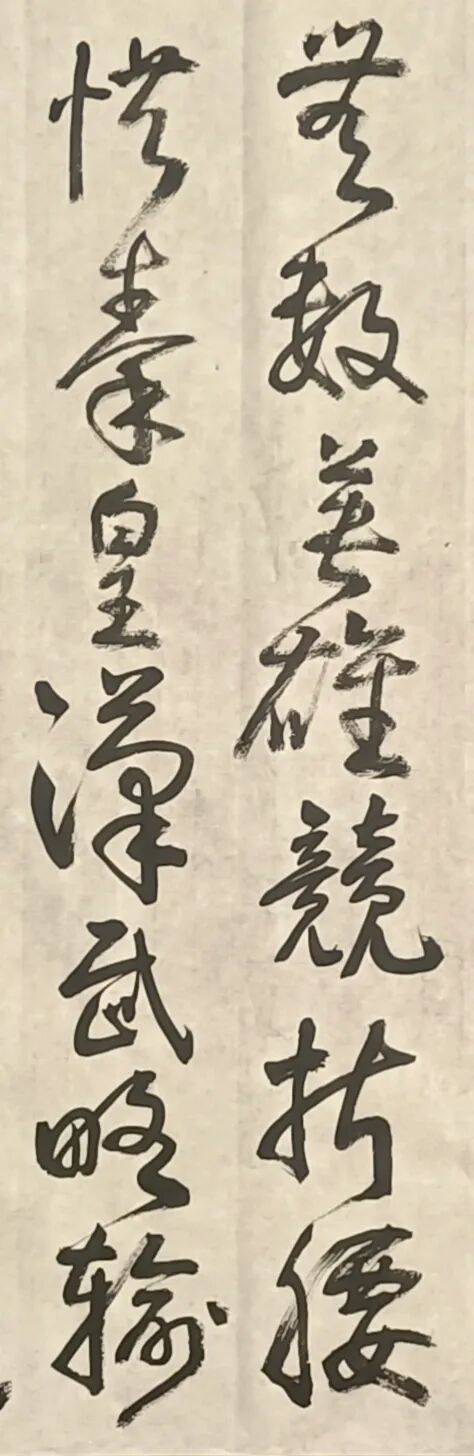 無數英雄競折腰
惜秦皇漢武略輸